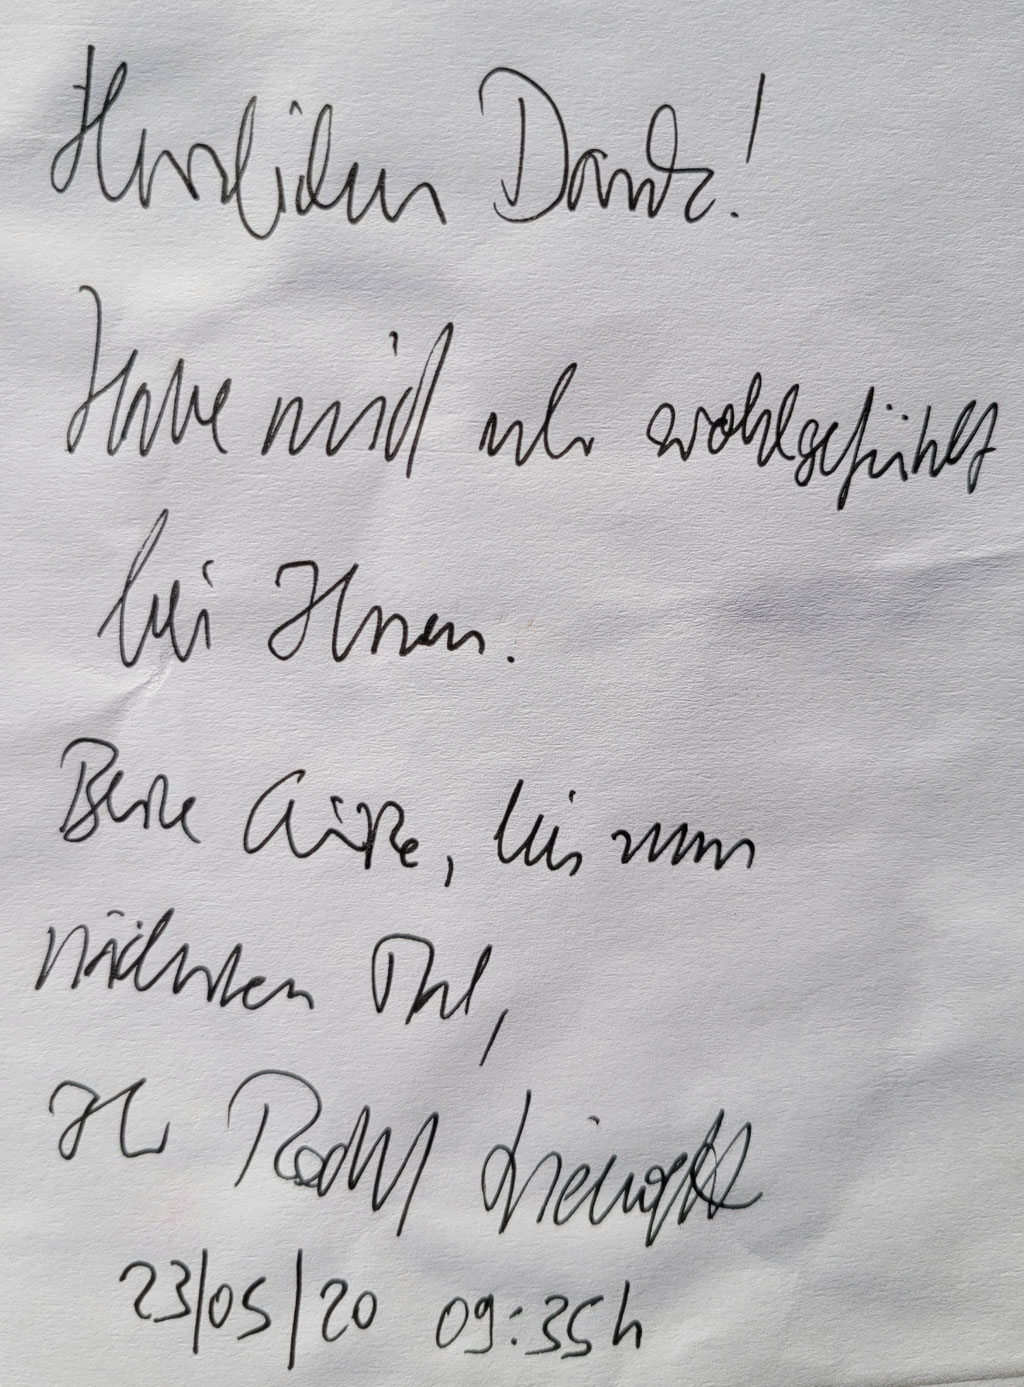 Herzlichen Dank!
Habe mich sehr wohlgefühlt
bei Ihnen.
Beste Grüße, bis zum
nächsten Mal,
Ihr Rudolf
23/05/20 09:35h